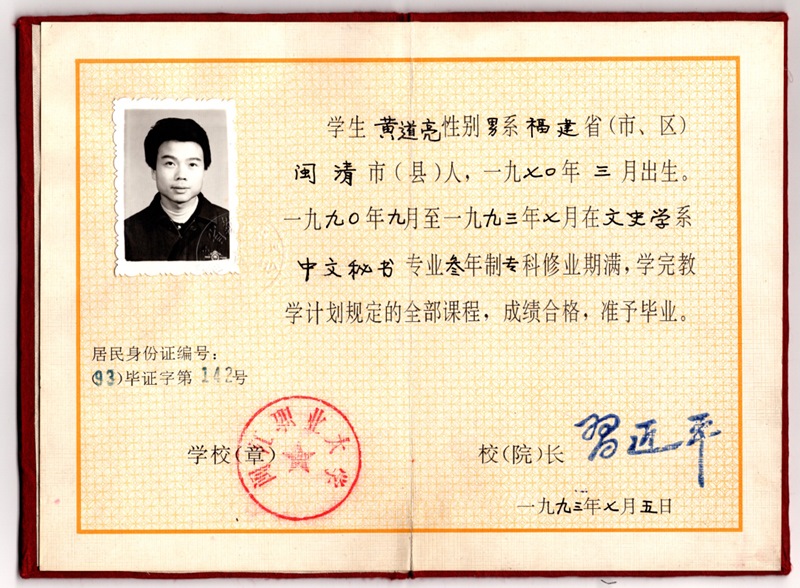 学生 黄道亮 性别 男 系 福建 省(市、区)
闽清 市(县)人，一九七〇年 三 月出生。
一九九〇年九月至一九九三年七月在文史学系
中文秘书 专业叁年制专科修业期满，学完教
学计划规定的全部课程，成绩合格，准予毕业。
居民身份证编号：
(93)毕证字第 142号
学校(章)
闽江职业大学
校(院)长 習近平
一九九三年七月五日